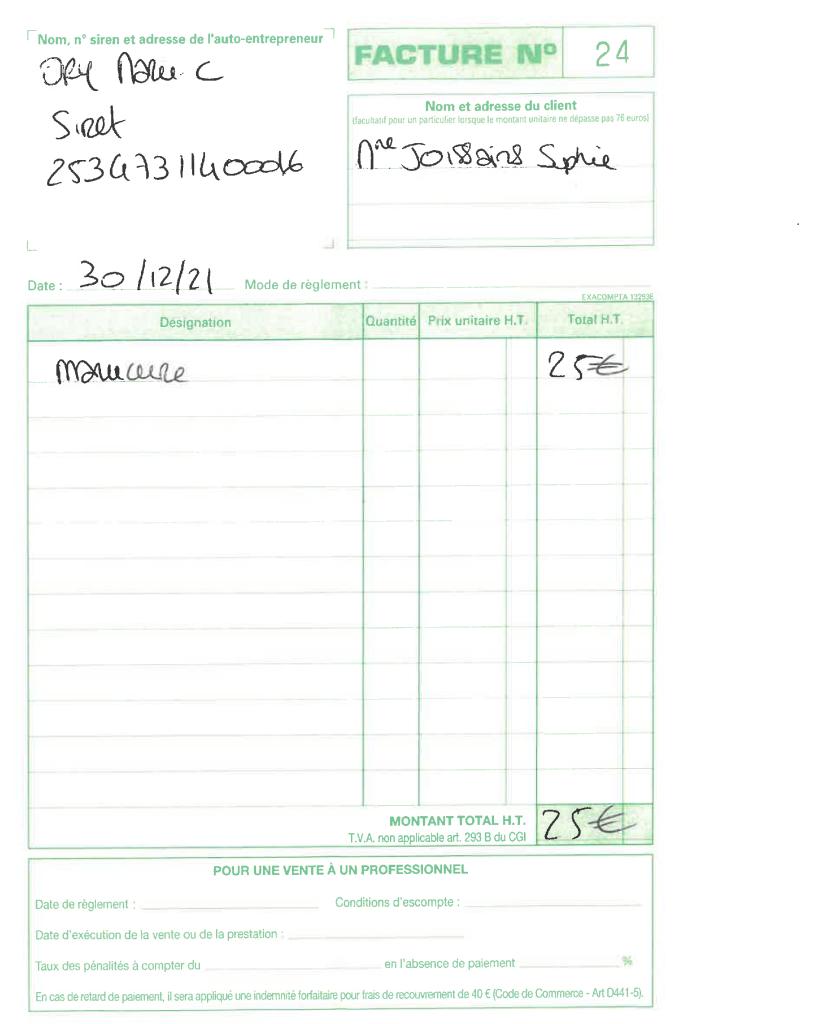 Nom, n° siren et adresse de l'auto-entrepreneur
ORY Marie C
Siret
25347311400016
FACTURE N° 24
Nom et adresse du client
(facultatif pour un particulier lorsque le montant unitaire ne dépasse pas 76 euros)
Mme Joissains Sophie
Date : 30/12/21 Mode de règlement :
EXACOMPTA 13293E
Désignation Quantité Prix unitaire H.T. Total H.T.
Manucure 25€
MONTANT TOTAL H.T. 25€
T.V.A. non applicable art. 293 B du CGI
POUR UNE VENTE À UN PROFESSIONNEL
Date de règlement : Conditions d'escompte :
Date d'exécution de la vente ou de la prestation :
Taux des pénalités à compter du en l'absence de paiement %
En cas de retard de paiement, il sera appliqué une indemnité forfaitaire pour frais de recouvrement de 40 € (Code de Commerce - Art D441-5).